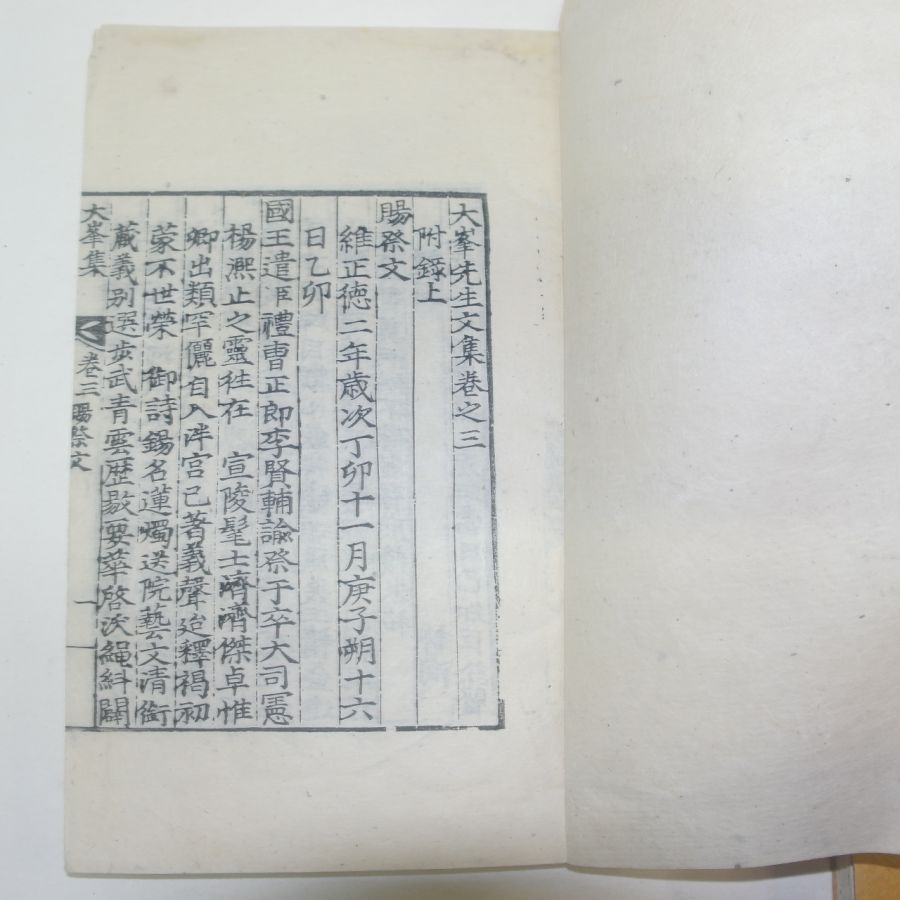 大峯先生文集卷之三
附錄上
賜祭文
維正德二年歲次丁卯十一月庚子朔十六
日乙卯
國王遣臣禮曹正郎李賢輔諭祭于卒大司憲
楊熙止之靈往在 宣陵髦士濟濟傑卓惟
卿出類罕儷自入泮宮已著義聲迨釋褐初
蒙不世榮 御詩錫名蓮燭送院藝文淸銜
藏義別選步武靑雲歷敭要華啓沃繩糾闢
大峯集 卷三 賜祭文 一